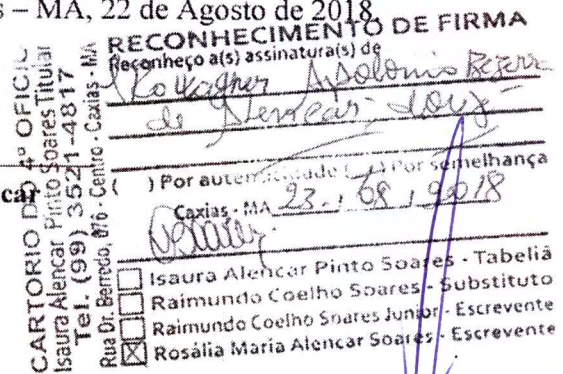 s – MA, 22 de Agosto de 2018.
RECONHECIMENTO DE FIRMA
Reconheço a(s) assinatura(s) de
Wagner Apolonio Bezerra
de Alencar
car
( ) Por autenticidade ( ) Por semelhança
Caxias - MA 23 / 08 / 2018
Isaura Alencar Pinto Soares - Tabeliã
Raimundo Coelho Soares - Substituto
Raimundo Coelho Soares Junior - Escrevente
Rosália Maria Alencar Soares - Escrevente
CARTORIO DO 4º OFICIO
Isaura Alencar Pinto Soares Titular
Tel. (99) 3521-4817
Rua Dr. Berredo, 876 - Centro - Caxias - MA